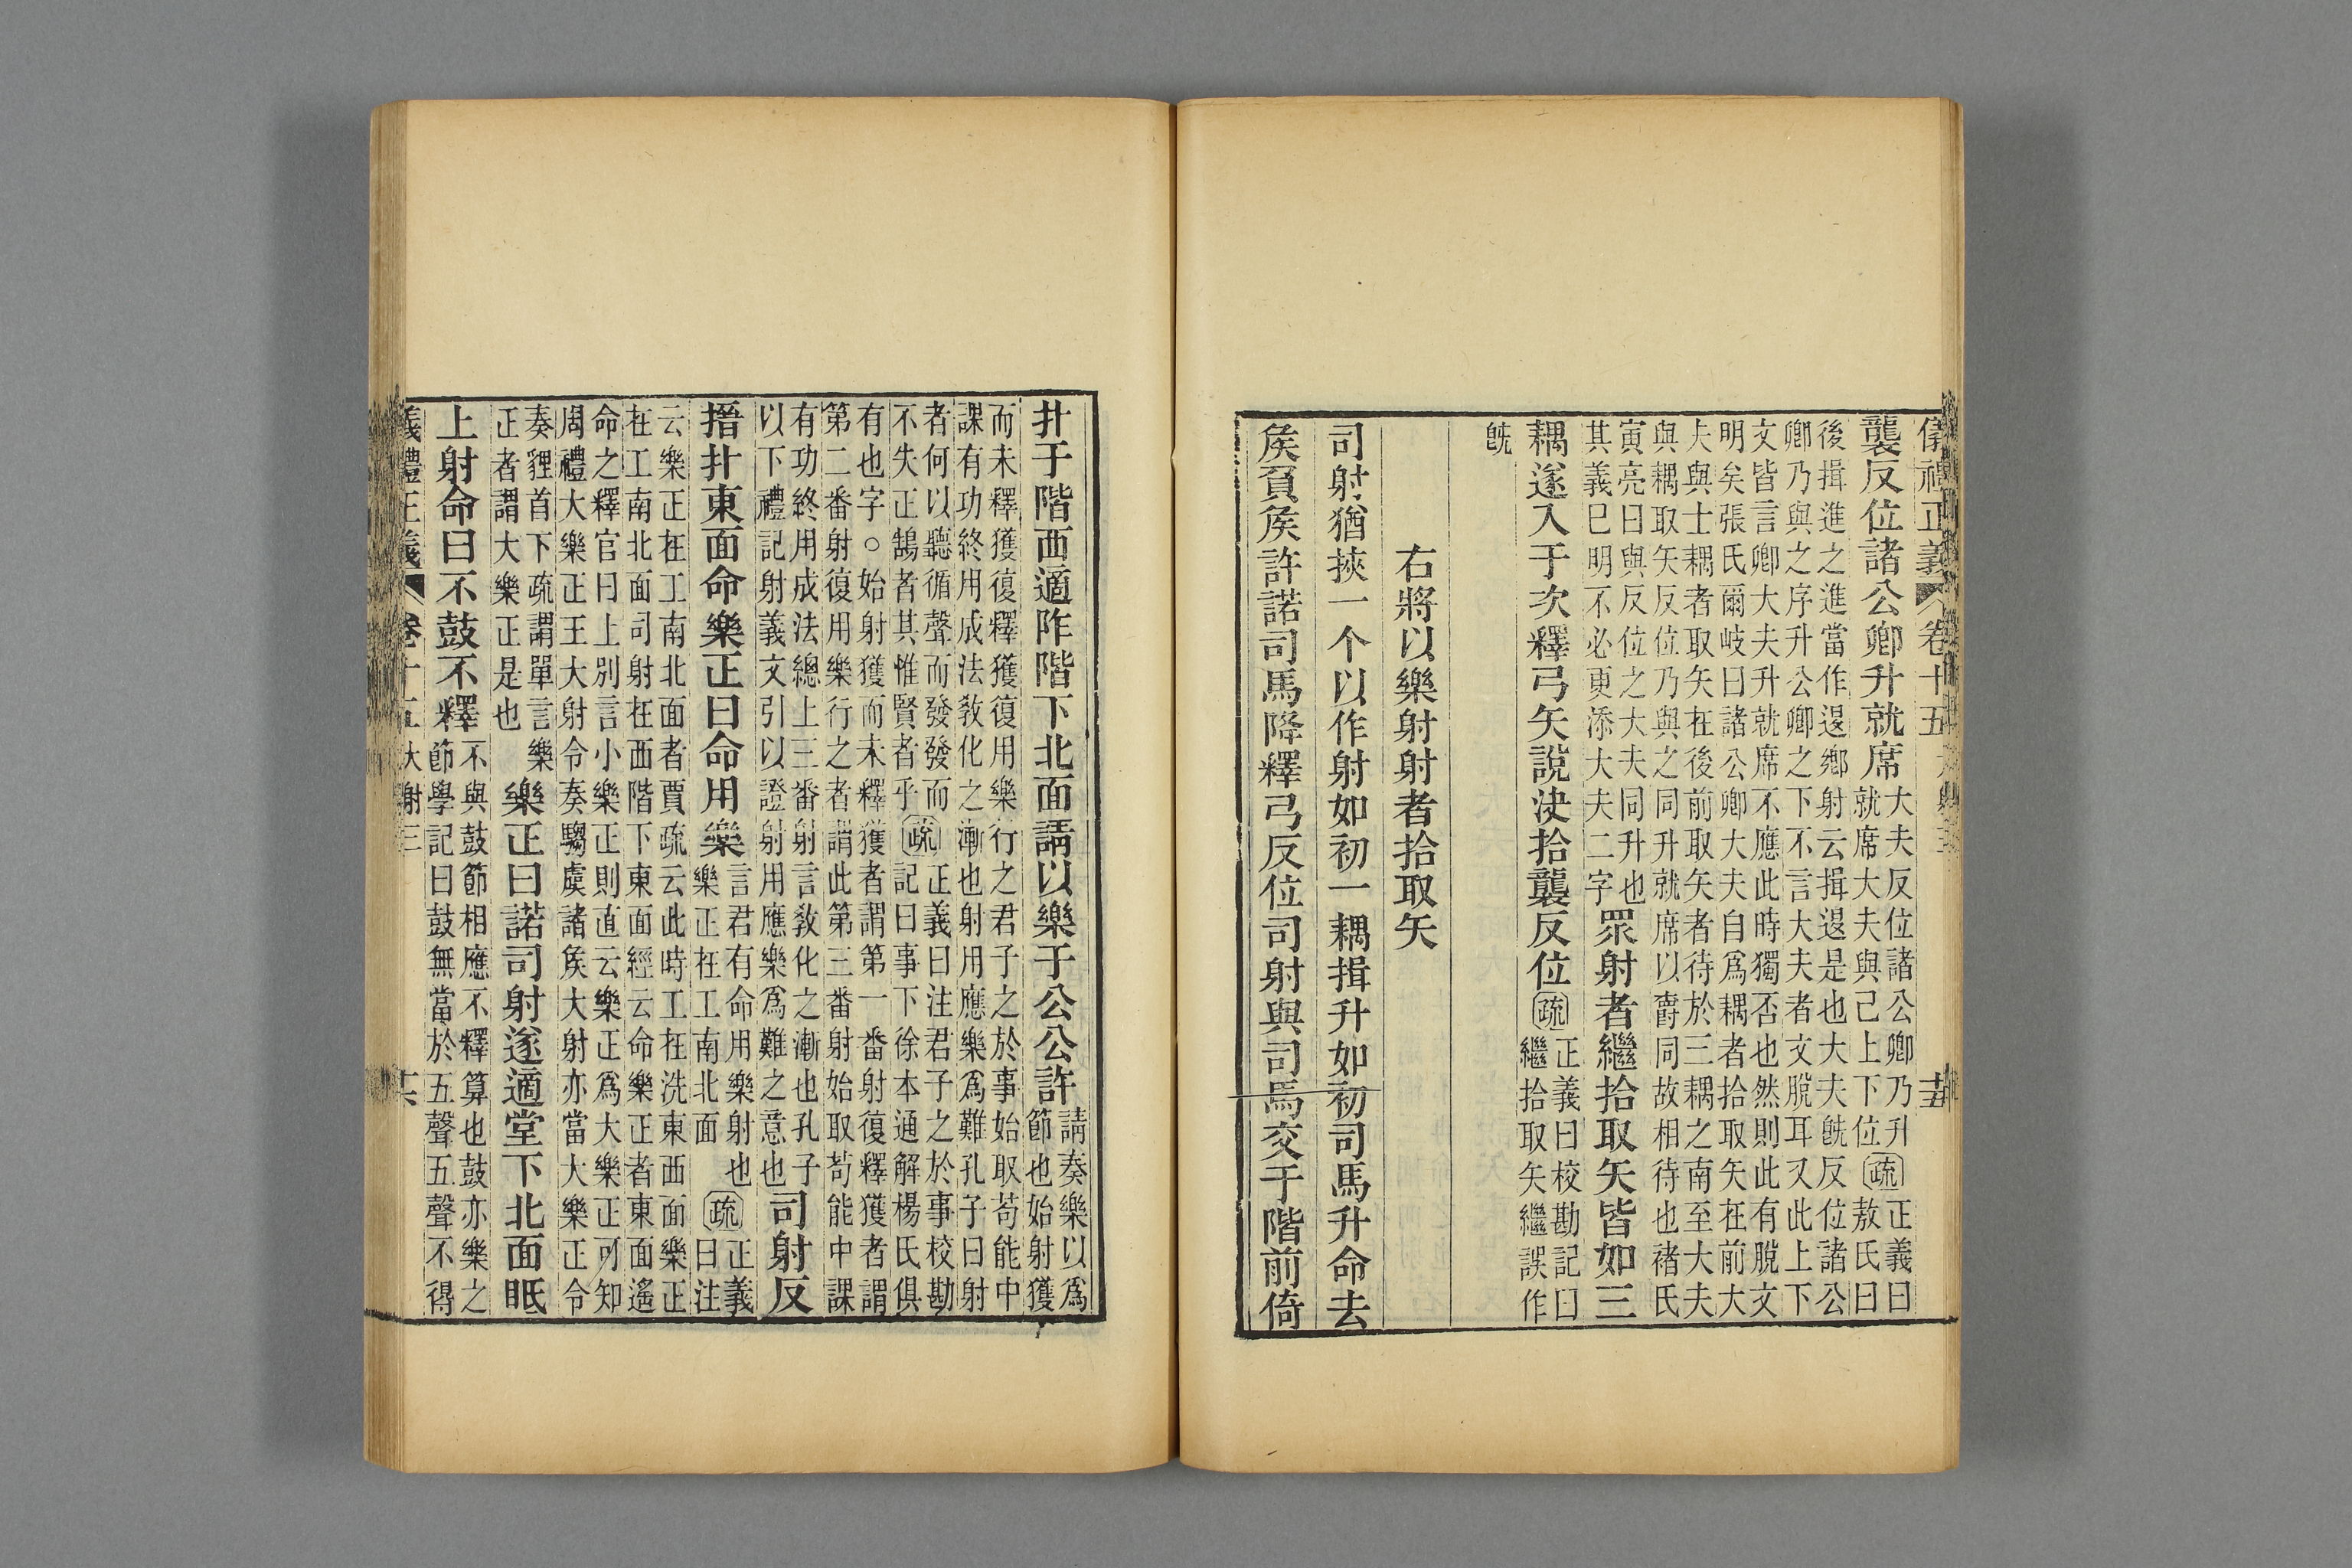 儀禮正義 卷十五
襲反位諸公卿升就席大夫反位諸公卿乃升
就席大夫與己上下位疏正義曰
敖氏曰
後揖進之進當作退鄉射云揖退是也大夫旣反位諸公
卿乃與之序升公卿之下不言大夫者文脫耳又此上下
文皆言卿大夫升就席不應此時獨否也然則此有脫文
明矣張氏爾岐曰諸公卿大夫自爲耦者拾取矢在前大
夫與士耦者取矢在後前取矢者待於三耦之南至大夫
與耦取矢反位乃與之同升就席以齒同故相待也褚氏
寅亮曰與反位之大夫同升也
其義已明不必更添大夫二字
眾射者繼拾取矢皆如三
耦遂入于次釋弓矢說決拾襲反位疏正義曰校勘記曰
繼拾取矢繼誤作
旣
右將以樂射射者拾取矢
司射猶挾一个以作射如初一耦揖升如初司馬升命去
矦負矦許諾司馬降釋弓反位司射與司馬交于階前倚
扑于階西適阼階下北面請以樂于公公許請奏樂以爲
節也始射獲
而未釋獲復釋獲復用樂行之君子之於事始取苟能中
課有功終用成法敎化之漸也射用應樂爲難孔子曰射
者何以聽循聲而發發而
不失正鵠者其惟賢者乎疏正義曰注君子之於事校勘
記曰事下徐本通解楊氏俱
有也字○始射獲而未釋獲者謂第一番射復釋獲者謂
第二番射復用樂行之者謂此第三番射始取苟能中課
有功終用成法總上三番射言敎化之漸也孔子
以下禮記射義文引以證射用應樂爲難之意也
司射反
搢扑東面命樂正曰命用樂言君有命用樂射也
樂正在工南北面
疏正義
曰注
云樂正在工南北面者賈疏云此時工在洗東西面樂正
在工南北面司射在西階下東面經云命樂正者東面遙
命之釋官曰上別言小樂正則直云樂正爲大樂正可知
周禮大樂正王大射令奏騶虞諸矦大射亦當大樂正令
奏貍首下疏謂單言樂
正者謂大樂正是也
樂正曰諾司射遂適堂下北面眡
上射命曰不鼓不釋不與鼓節相應不釋算也鼓亦樂之
節學記曰鼓無當於五聲五聲不得
儀禮正義 卷十五 大射三